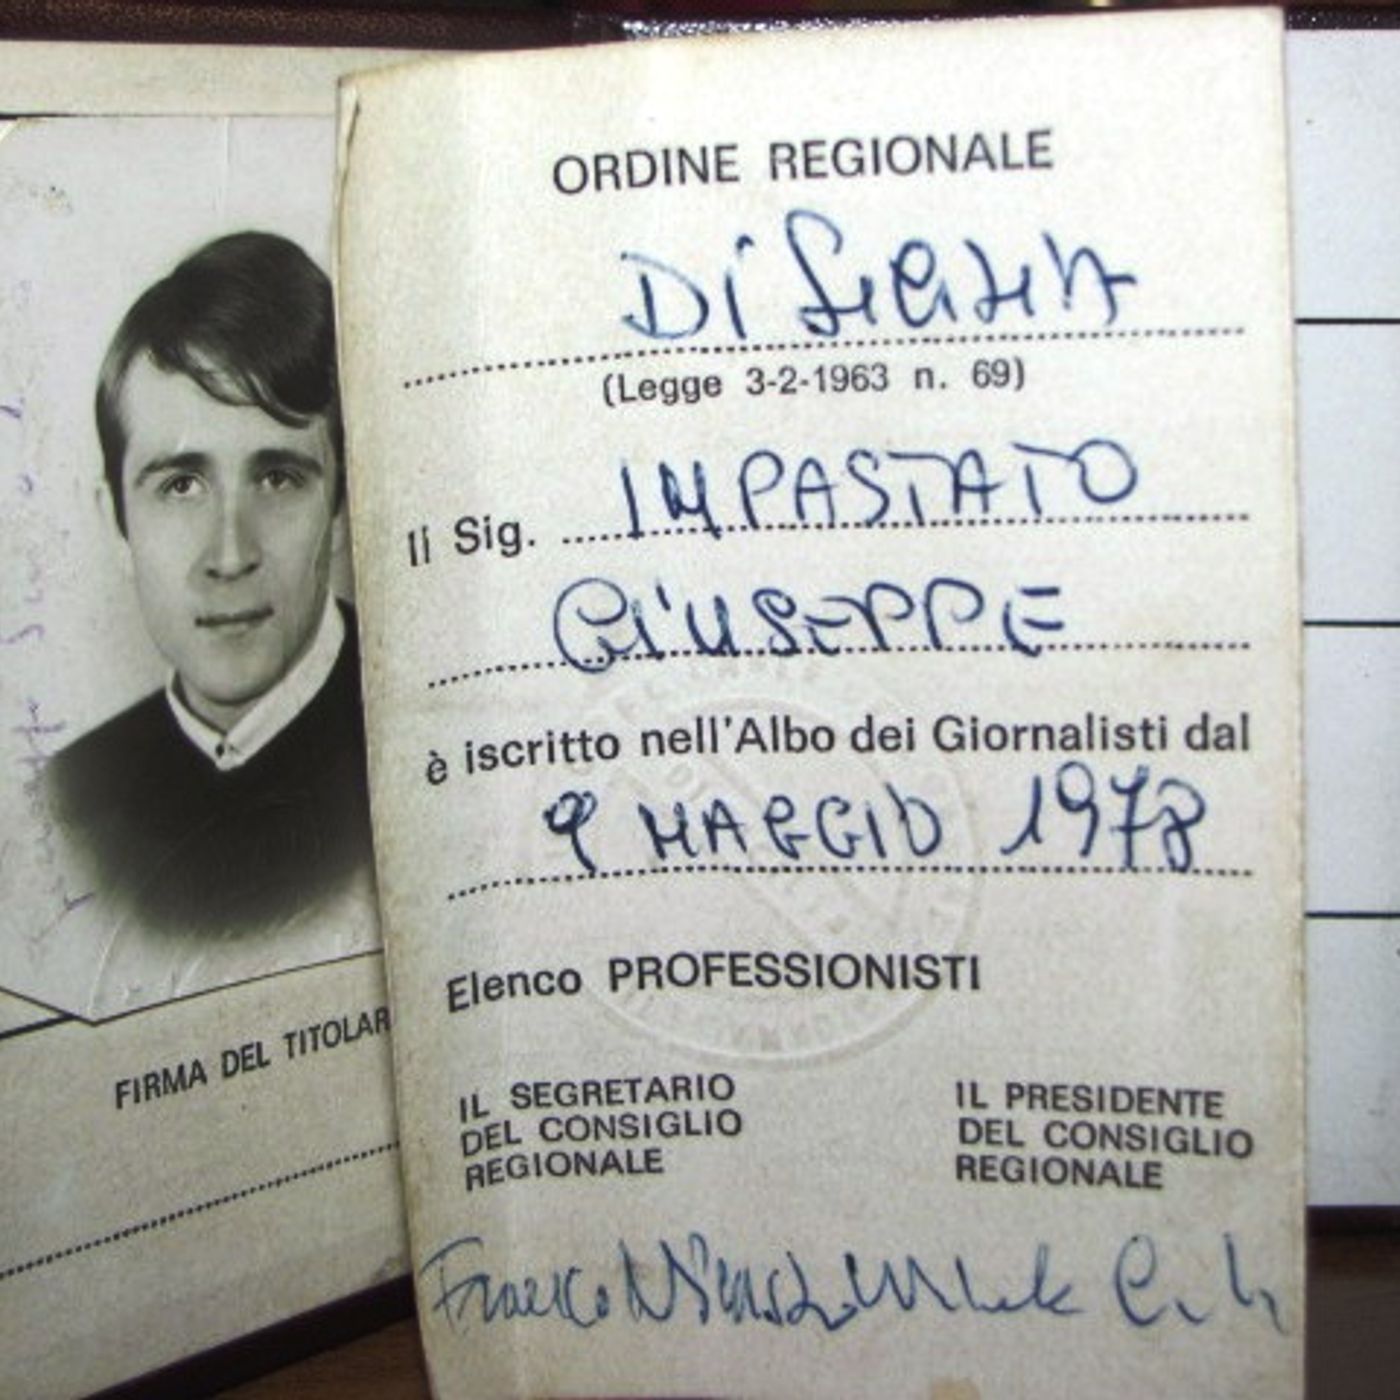 ORDINE REGIONALE
Di Sicilia
(Legge 3-2-1963 n. 69)
Il Sig. IMPASTATO
GIUSEPPE
è iscritto nell'Albo dei Giornalisti dal
9 MAGGIO 1978
Elenco PROFESSIONISTI
IL SEGRETARIO
DEL CONSIGLIO
REGIONALE
IL PRESIDENTE
DEL CONSIGLIO
REGIONALE
Franco
FIRMA DEL TITOLAR